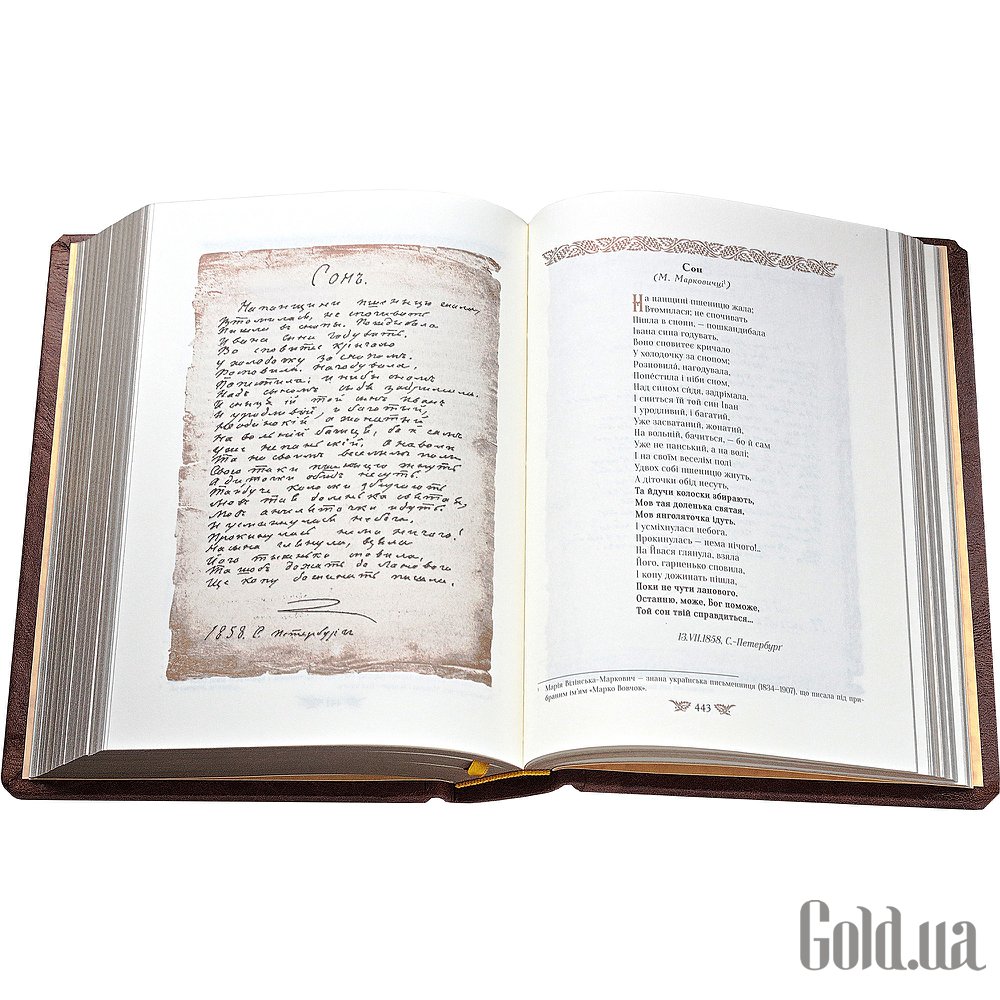 Сонъ.
На панщини пшеницю жала,
Втомилася, не спочивать
Пишла въ снопы. Пошкадибала
Ивана сина годувать.
Во сповитее крічало
У холодочку за снопомъ.
Росповила, нагодувала,
Попестила; и ниби сномъ
Надъ сыномъ сидя задримала.
И сныця ій той сынъ Иванъ
И уродливій, и багатий,
На вольній бачиця, бо й самъ
Уже не панській, а на воли
Та на своимъ веселимъ поли
Свою таки пшеницю жнуть
А диточки обидъ несуть.
Прокинулась нема ничого!
На сына глянула, взяла
Його тыхенько сповила,
Та щобъ дожать до ланового
Ще копу дожинать пишла.
1858. С. Петербургъ
Сон
(М. Марковичці¹)
На панщині пшеницю жала;
Втомилася; не спочивать
Пішла в снопи, – пошкандибала
Івана сина годувать.
Воно сповитеє кричало
У холодочку за снопом;
Розповила, нагодувала,
Попестила і ніби сном,
Над сином сидя, задрімала.
І сниться їй той син Іван
І уродливий, і багатий,
Уже засватаний, жонатий,
На вольній, бачиться, – бо й сам
Уже не панський, а на волі;
І на своїм веселім полі
Удвох собі пшеницю жнуть,
А діточки обід несуть,
Та йдучи колоски збирають,
Мов тая доленька святая,
Мов янголяточка ідуть.
І усміхнулася небога.
Прокинулась – нема нічого!..
На Йвася глянула, взяла
Його, гарненько сповила,
І копу дожинать пішла,
Поки не чути ланового.
Останню, може, Бог поможе,
Той сон твій справдиться...
13.VII.1858, С.-Петербурґ
Марія Вілінська-Маркович – знана українська письменниця (1834–1907), що писала під при-
браним ім'ям «Марко Вовчок».
443
Gold.ua